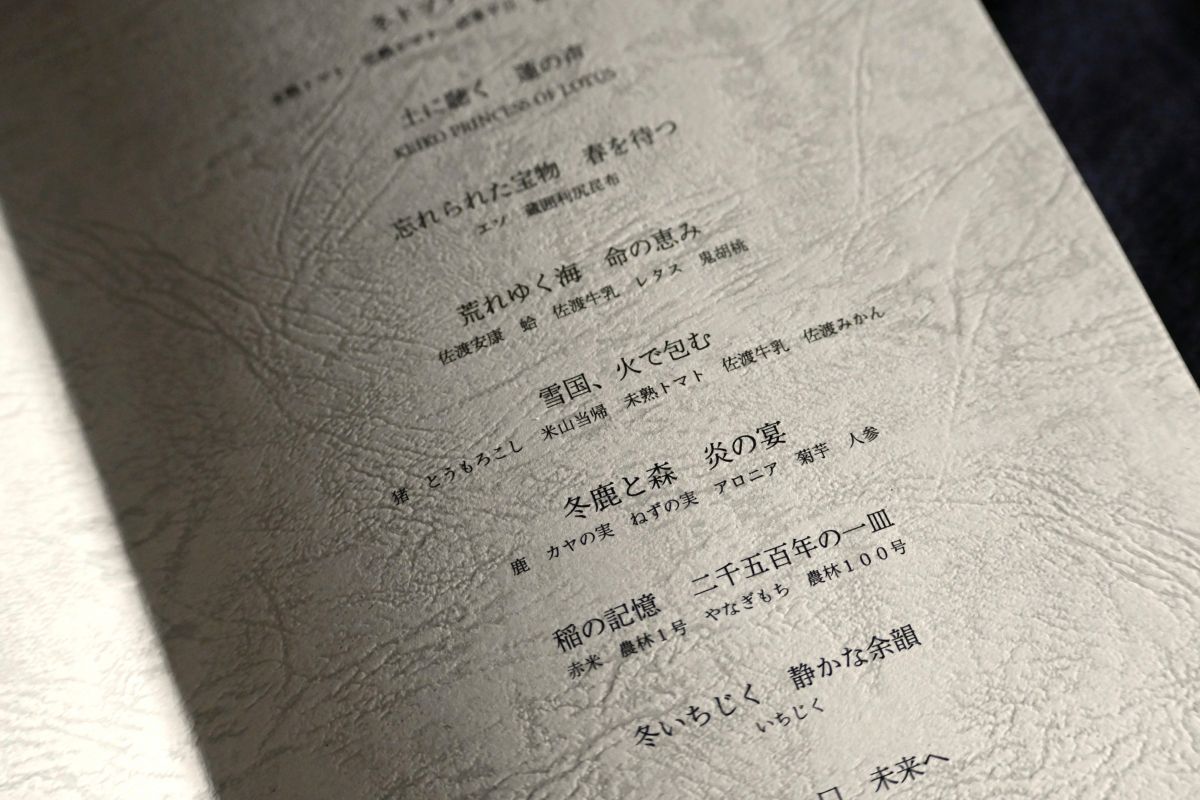 土に聴く　蓮の声
KEIKO PRINCESS OF LOTUS
忘れられた宝物　春を待つ
エソ　蔵囲利尻昆布
荒れゆく海　命の恵み
佐渡安康　蛤　佐渡牛乳　レタス　鬼胡桃
雪国、火で包む
猪　とうもろこし　米山当帰　未熟トマト　佐渡牛乳　佐渡みかん
冬鹿と森　炎の宴
鹿　カヤの実　ねずの実　アロニア　菊芋　人参
稲の記憶　二千五百年の一皿
赤米　農林１号　やなぎもち　農林１００号
冬いちじく　静かな余韻
いちじく
未来へ